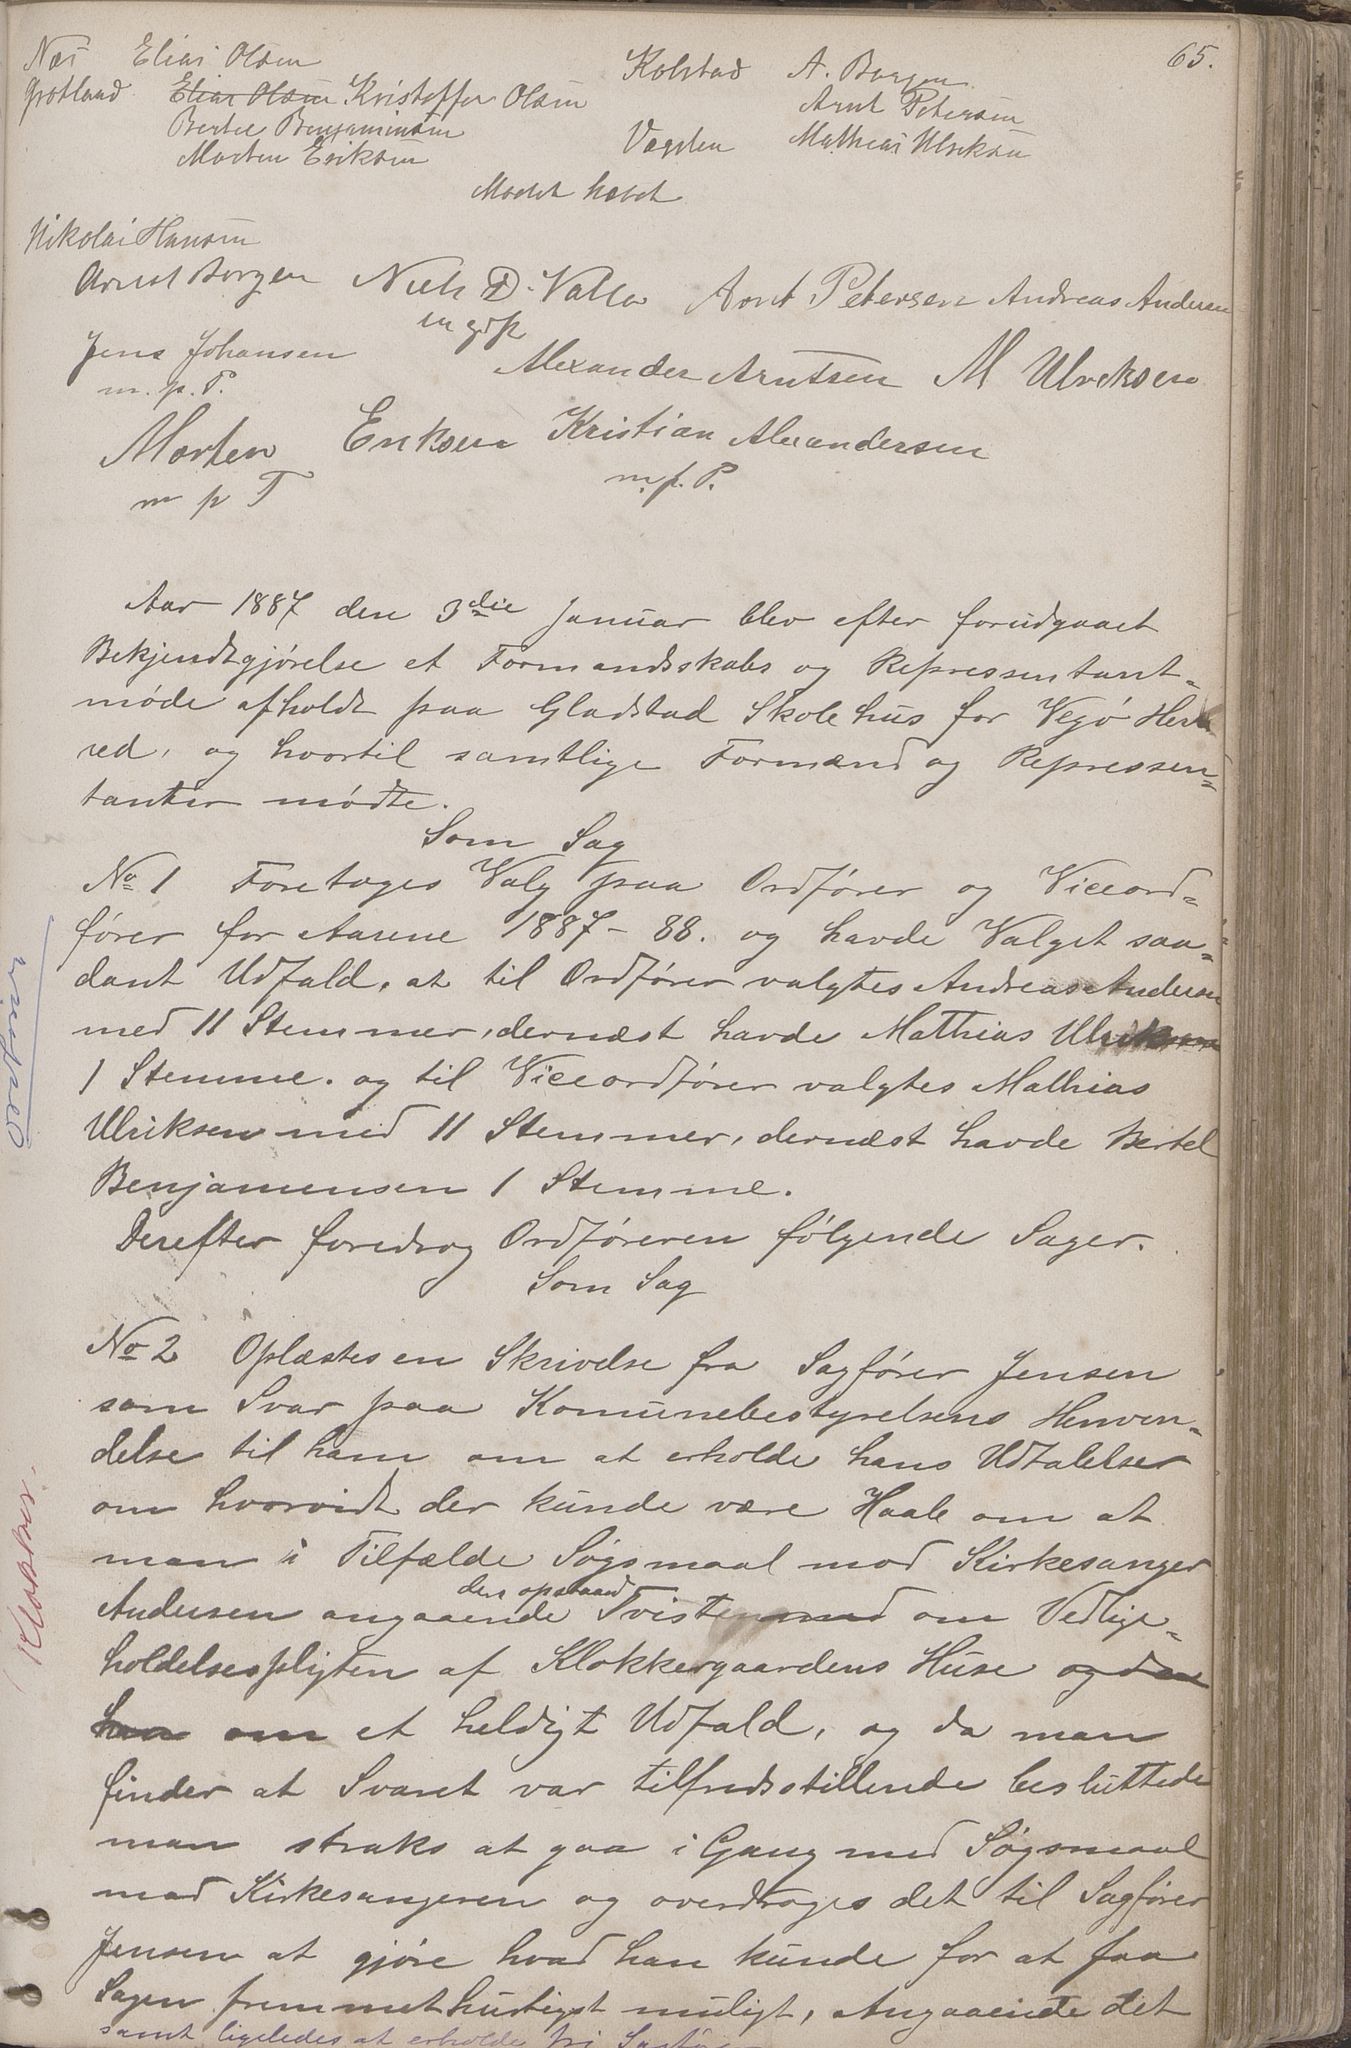 65.
Nes Elias Olsen
Grotland ~~Elias Olsen~~ Kristoffer Olsen
Bertel Benjaminsen
Morten Eriksen
Kolstad A. Borgen
Arnt Petersen
Vegden Mathias Ulriksen
Mødet hævet
Nikolai Hansen
Arnt Borgen Niels D. Valla Arnt Petersen Andreas Andersen
Jens Johansen
m. p. P.
Alexander Arntsen M Ulreksen
Morten Eriksen Kristian Alexandersen
m p P
m. p. P.
Aar 1887 den 3die Januar blev efter forudgaaet
Bekjendtgjørelse et Formandsskabs og Repressentant-
møde afholdt paa Gladstad Skolehus for Vegø Her-
red, og hvortil samtlige Formænd og Repressen-
tanter mødte.
Som Sag
No 1 Foretoges Valg paa Ordfører og Viceord-
fører for Aarene 1887-88. og havde Valget saa-
dant Udfald, at til Ordfører valgtes Andreas Andersen
med 11 Stemmer, dernæst havde Mathias Ulriksen
1 Stemme. og til Viceordfører valgtes Mathias
Ulriksen med 11 Stemmer, dernæst havde Bertel
Benjamensen 1 Stemme.
Derefter foredrog Ordføreren følgende Sager.
Som Sag
No 2 Oplæstes en Skrivelse fra Sagfører Jensen
som Svar paa Komunebestyrelsens Henven-
delse til ham om at erholde hans Udtalelser
om hvorvidt der kunde være Haab om at
man i Tilfælde Søgsmaal mod Kirkesanger
Andersen angaaende den opstaaed Tvisten ~~med~~ om Vedlige-
holdelsespligten af Klokkergaardens Huse ~~og den~~
~~han om~~ et heldigt Udfald, og da man
finder at Svaret var tilfredsstillende besluttede
man straks at gaa i Gang med Søgsmaal
mod Kirkesangeren og overdroges det til Sagfører
Jensen at gjøre hvad han kunde for at faa
Sagen fremmet hurtigst muligt, Angaaende det
samt ligeledes at erholde fri
Ordfører
Klokker.